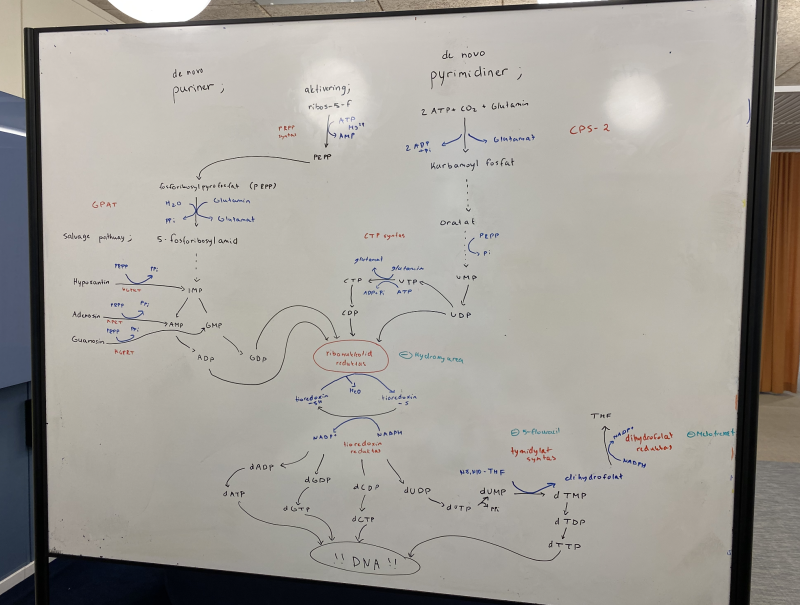 de novo
puriner ;
aktivering;
ribos-5-f
PRPP
syntas
ATP
AMP
PRPP
de novo
pyrimidiner ;
2 ATP + CO2 + Glutamin
2 ADP
+ Pi
Glutamat
CPS-2
Karbamoyl fosfat
Orotat
PRPP
Pi
UMP
UDP
CTP syntas
glutamat
glutamin
CTP
UTP
ADP+Pi
ATP
CDP
fosforibosylpyrofosfat (PRPP)
GPAT
H2O
Glutamin
PPi
Glutamat
Salvage pathway;
5-fosforibosylamid
Hypoxantin
PRPP
PPi
HGPRT
IMP
Adenosin
PRPP
PPi
APRT
AMP
GMP
Guanosin
PRPP
PPi
HGPRT
ADP
GDP
ribonukleotid
reduktas
⊖ Hydroxyurea
tioredoxin
-SH
H2O
tioredoxin
-S
NADP+
NADPH
tioredoxin
reduktas
dADP
dATP
dGDP
dGTP
dCDP
dCTP
dUDP
dUTP
PPi
dUMP
⊖ 5-fluoruracil
tymidylat
syntas
N5,N10-THF
dihydrofolat
THF
NADP+
NADPH
dihydrofolat
reduktas
dTMP
dTDP
dTTP
!! DNA !!